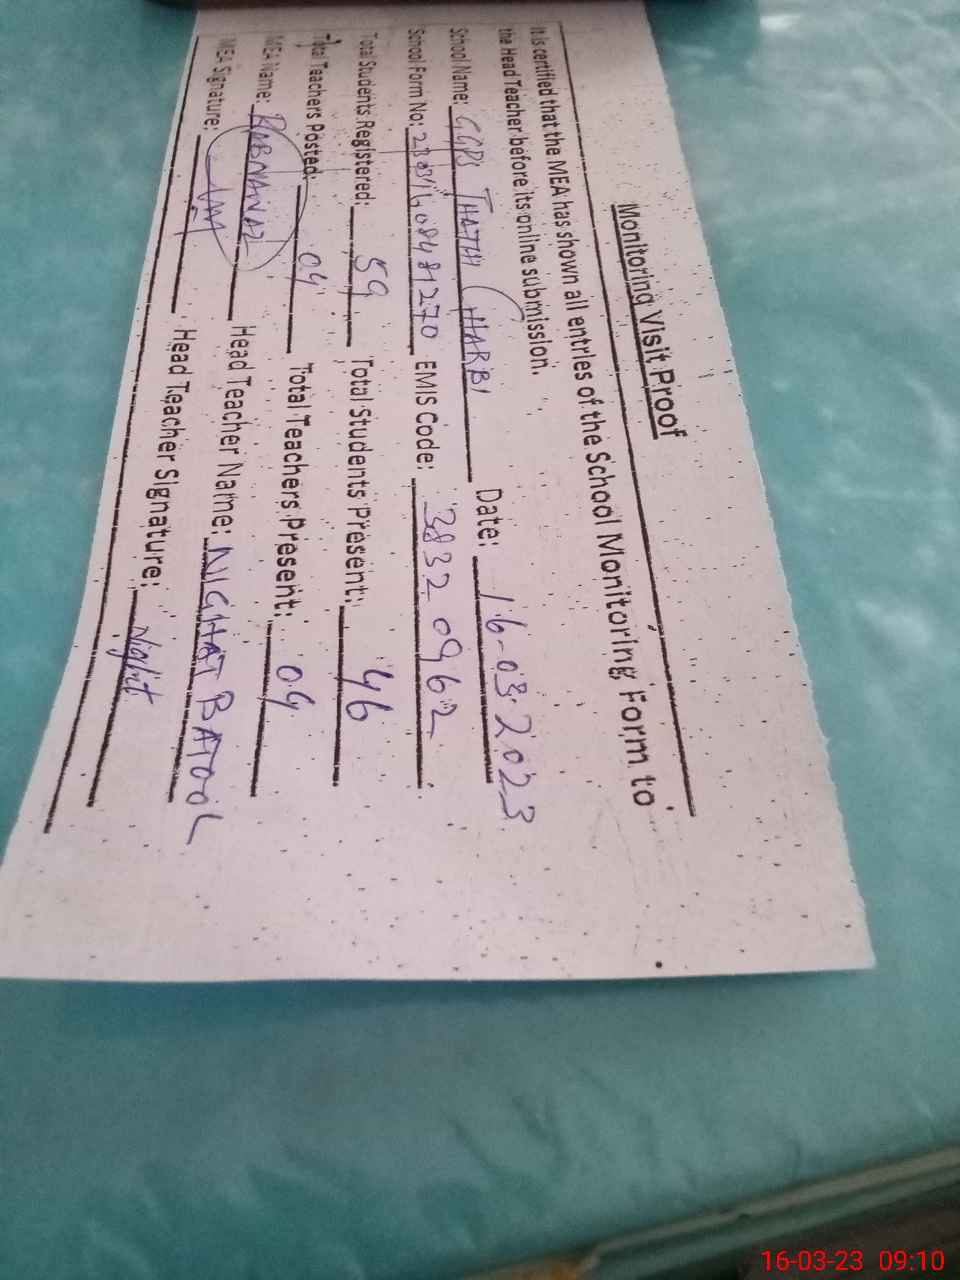 Monitoring Visit Proof
It is certified that the MEA has shown all entries of the School Monitoring Form to
the Head Teacher before its online submission.
School Name: GGPS THATHI HARBI Date: 16-03-2023
School Form No: EMIS Code: 38320962
Total Students Registered: 59 Total Students Present: 46
Total Teachers Posted: 04 Total Teachers Present: 04
MEA Name: RABNAWAZ Head Teacher Name: NIGHAT BATOOL
MEA Signature: Head Teacher Signature: Night
16-03-23 09:10